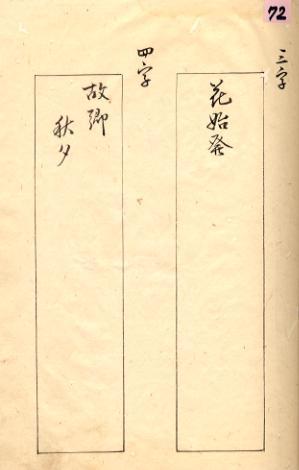 72
三字
花始発
四字
故郷
秋夕